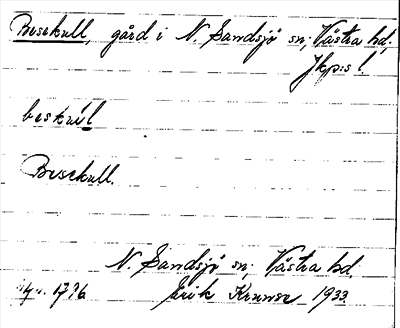 Besekull, gård i N. Sandsjö sn; Västra hd;
Jkp:s l.
beskúl
Besekull.
N. Sandsjö sn; Västra hd.
1776 Erik 1933